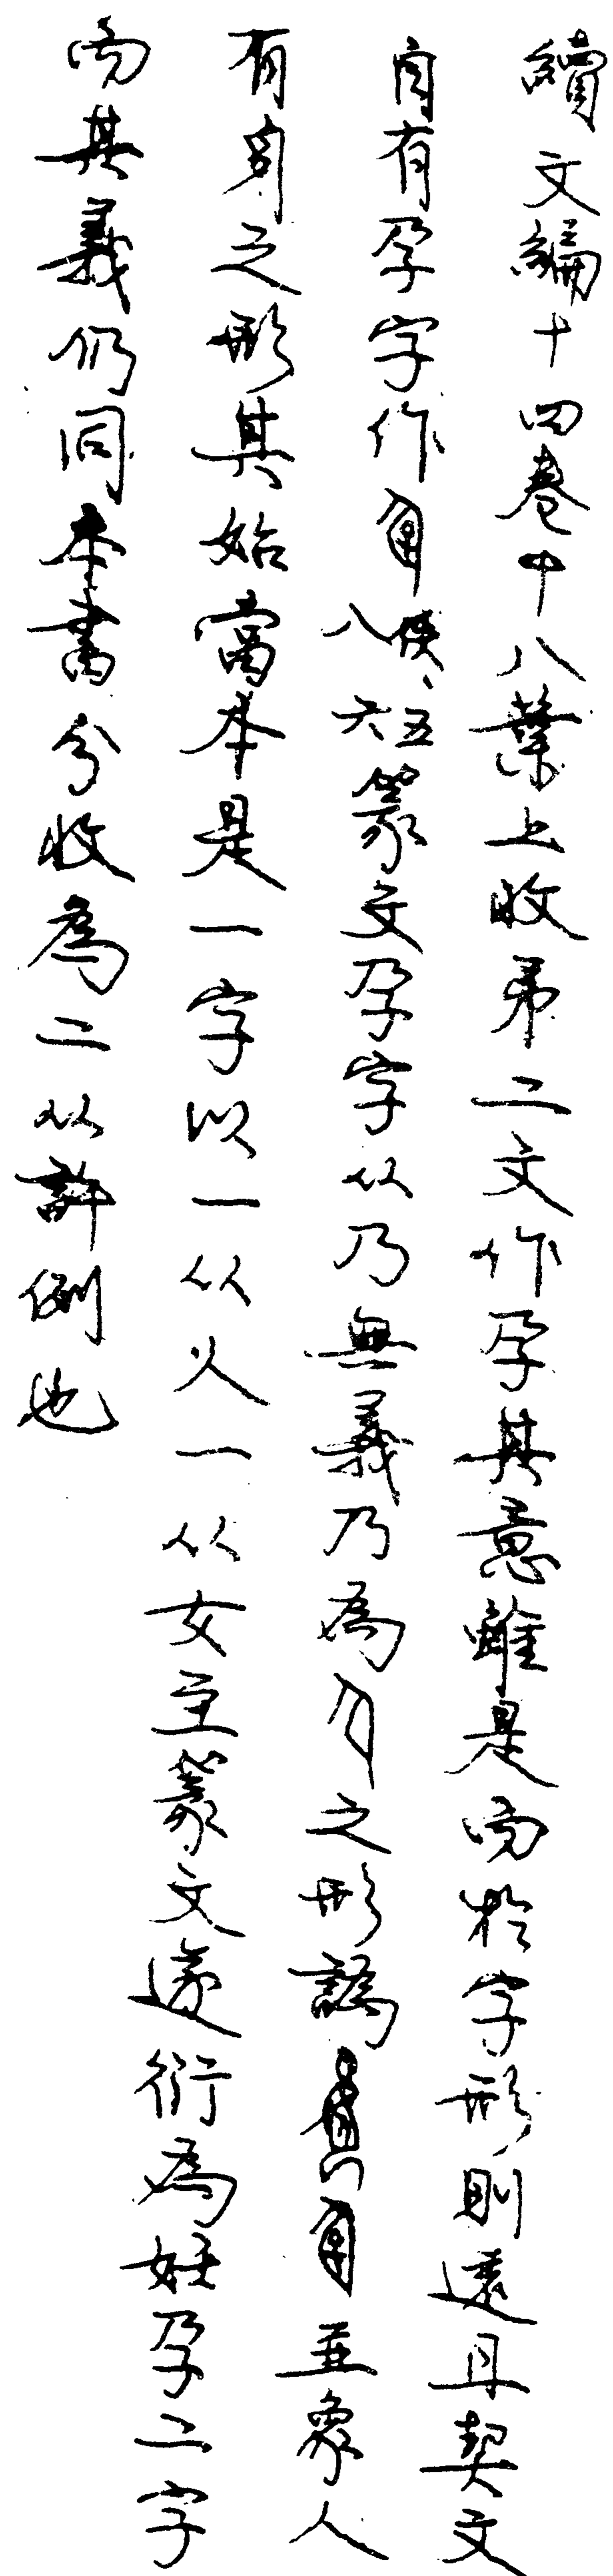 續文編十四卷中八葉上收弟二文作孕其意雖是而於字形則遠且契文
自有孕字作佚、五八六篆文孕字从乃無義乃為之形譌並象人
有身之形其始當本是一字以一从人一从女至篆文遂衍為妊孕二字
而其義仍同本書分收為二从許例也